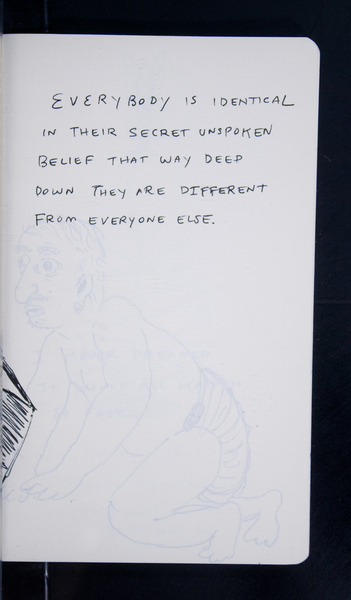 EVERYBODY IS IDENTICAL
IN THEIR SECRET UNSPOKEN
BELIEF THAT WAY DEEP
DOWN THEY ARE DIFFERENT
FROM EVERYONE ELSE.